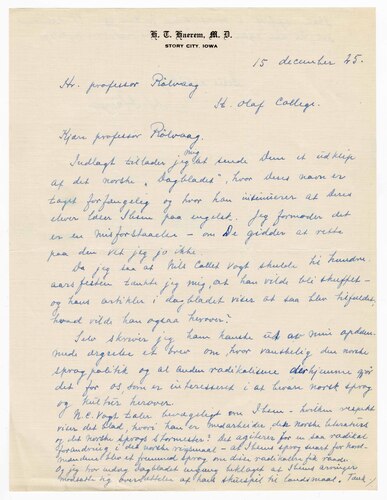 H. T. Haerem, M. D.
STORY CITY, IOWA
15 december 25.
Hr. professor Rölvaag
St. Olaf College.
Kjære professor Rölvaag.
Indlagt tillader jeg mig at sende Dem et utklip
af det norske "Dagbladet", hvor Deres navn er
tagt forfængelig og hvor han insinuerer at Deres
elever læser Ibsen paa engelsk. Jeg formoder det
er en misforstaaelse - om De gidder at rette
paa den vet jeg jo ikke.
Da jeg saa at Nils Collet Vogt skulde til hundre-
aarsfesten tænkte jeg mig, at han vilde bli skuffet -
og hans artikler i dagbladet viser at saa blev tilfældet,
hvad vilde han ogsaa herover?
Selv skriver jeg ham kanske
et brev om, hvor vanskelig den norske
sprog politik og at anden radikalisme derhjemme gjör
det for os som er interesseret i at bevare norsk sprog
og kultur herover.
N.C. Vogt taler bevægeligt om Ibsen - hvilken respekt
viser det blad, hvori han er medarbeider, den norske literaturs
og det norske sprogs stormester? Det agiterer for en saa radikal
forandring i det norske riksmaal - at Ibsens sprog
blot et fremmed sprog om disse radikalere fik raade.
Og jeg har